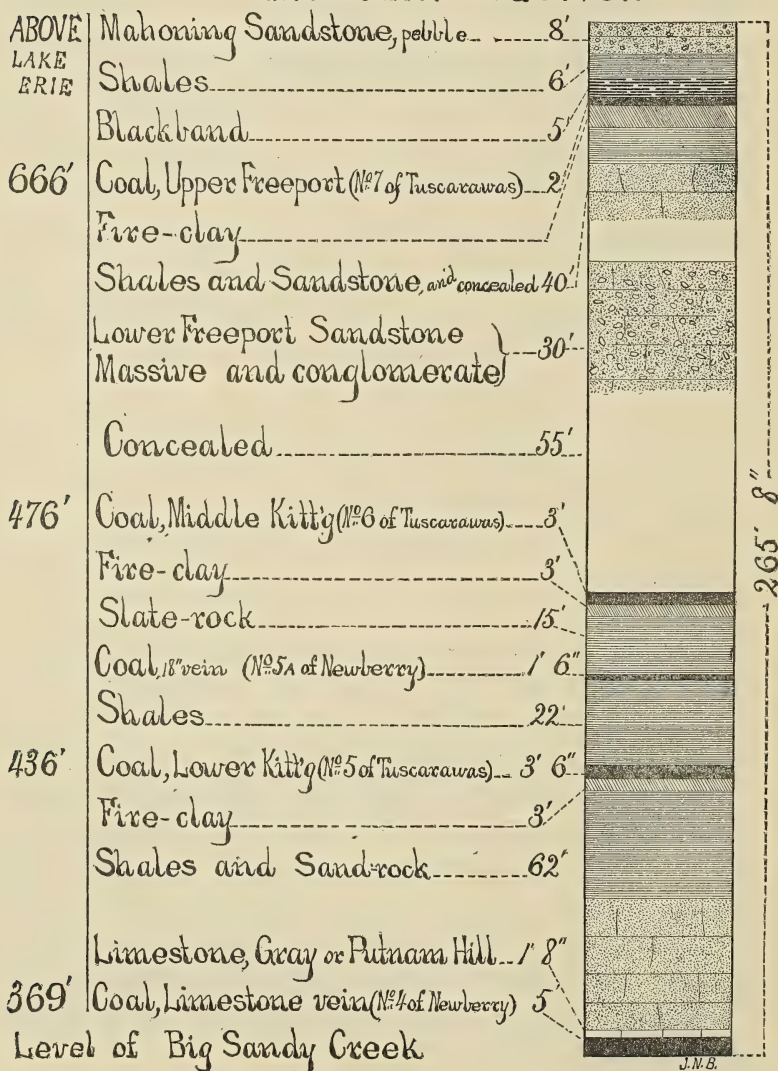 ABOVE
LAKE
ERIE
Mahoning Sandstone, pebble 8'
Shales 6'
Blackband 5'
666' Coal, Upper Freeport (No. 7 of Tuscarawas) 2'
Fire-clay
Shales and Sandstone, and concealed 40'
Lower Freeport Sandstone
Massive and conglomerate 30'
Concealed 55'
476' Coal, Middle Kitt'g (No. 6 of Tuscarawas) 3'
Fire-clay 3'
Slate-rock 15'
Coal, 18" vein (No. 5A of Newberry) 1' 6"
Shales 22'
436' Coal, Lower Kitt'g (No. 5 of Tuscarawas) 3' 6"
Fire-clay 3'
Shales and Sand-rock 62'
Limestone, Gray or Putnam Hill 1' 8"
369' Coal, Limestone vein (No. 4 of Newberry) 5'
Level of Big Sandy Creek
265' 8"
J.N.B.